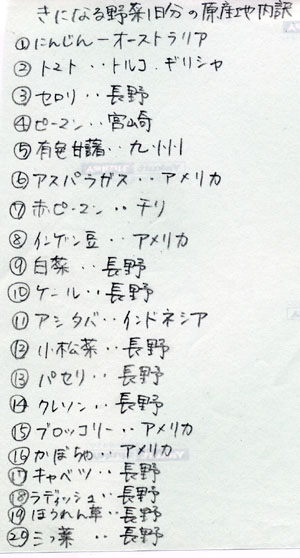 きになる野菜1日分の原産地内訳
①にんじんーオーストラリア
②トマト‥トルコ.ギリシャ
③セロリ‥長野
④ピーマン‥宮崎
⑤有色甘藷‥九州
⑥アスパラガス‥アメリカ
⑦赤ピーマン‥チリ
⑧インゲン豆‥アメリカ
⑨白菜‥長野
⑩ケール‥長野
⑪アシタバ‥インドネシア
⑫小松菜‥長野
⑬パセリ‥長野
⑭クレソン‥長野
⑮ブロッコリー‥アメリカ
⑯かぼちゃ‥アメリカ
⑰キャベツ‥長野
⑱ラディッシュ‥長野
⑲ほうれん草‥長野
⑳三つ葉‥長野